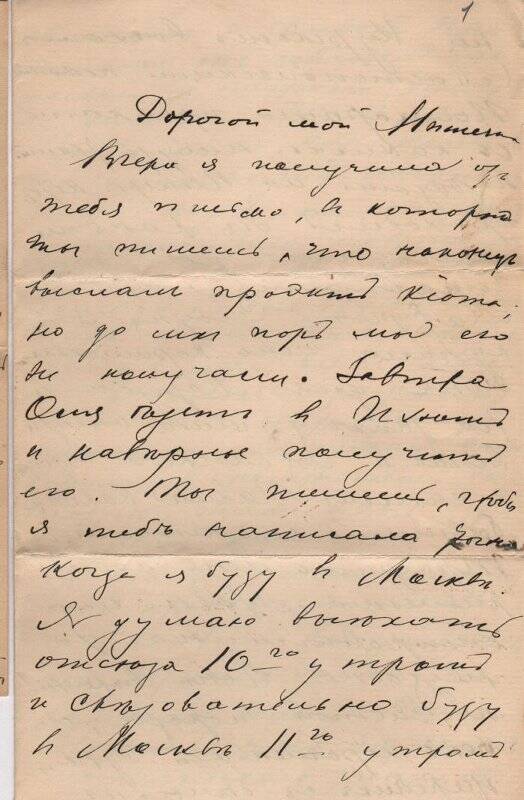 1
Дорогой мой
Вчера я получила отъ
тебя письмо, въ которомъ
ты пишешь, что наконецъ
выслалъ проэктъ кіота,
но до сихъ поръ мы его
не получали. Завтра
Оля будетъ въ
и навѣрные получитъ
его. Ты пишешь, чтобы
я тебѣ написала
когда я буду в Москвѣ.
Я думаю выѣхать
отсюда 10го утромъ
и слѣдовательно буду
в Москвѣ 11го утромъ